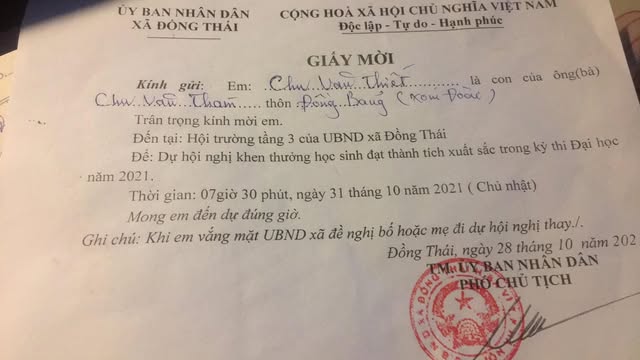 ỦY BAN NHÂN DÂN
XÃ ĐỒNG THÁI
CỘNG HOÀ XÃ HỘI CHỦ NGHĨA VIỆT NAM
Độc lập - Tự do - Hạnh phúc
GIẤY MỜI
Kính gửi: Em: Chu Văn Thiết............ là con của ông(bà)
Chu Văn Tham..... thôn Đồng Bảng (xóm Đoài)
Trân trọng kính mời em.
Đến tại: Hội trường tầng 3 của UBND xã Đồng Thái
Để: Dự hội nghị khen thưởng học sinh đạt thành tích xuất sắc trong kỳ thi Đại học
năm 2021.
Thời gian: 07giờ 30 phút, ngày 31 tháng 10 năm 2021 ( Chủ nhật)
Mong em đến dự đúng giờ.
Ghi chú: Khi em vắng mặt UBND xã đề nghị bố hoặc mẹ đi dự hội nghị thay./.
Đồng Thái, ngày 28 tháng 10 năm 202
TM. ỦY BAN NHÂN DÂN
PHÓ CHỦ TỊCH